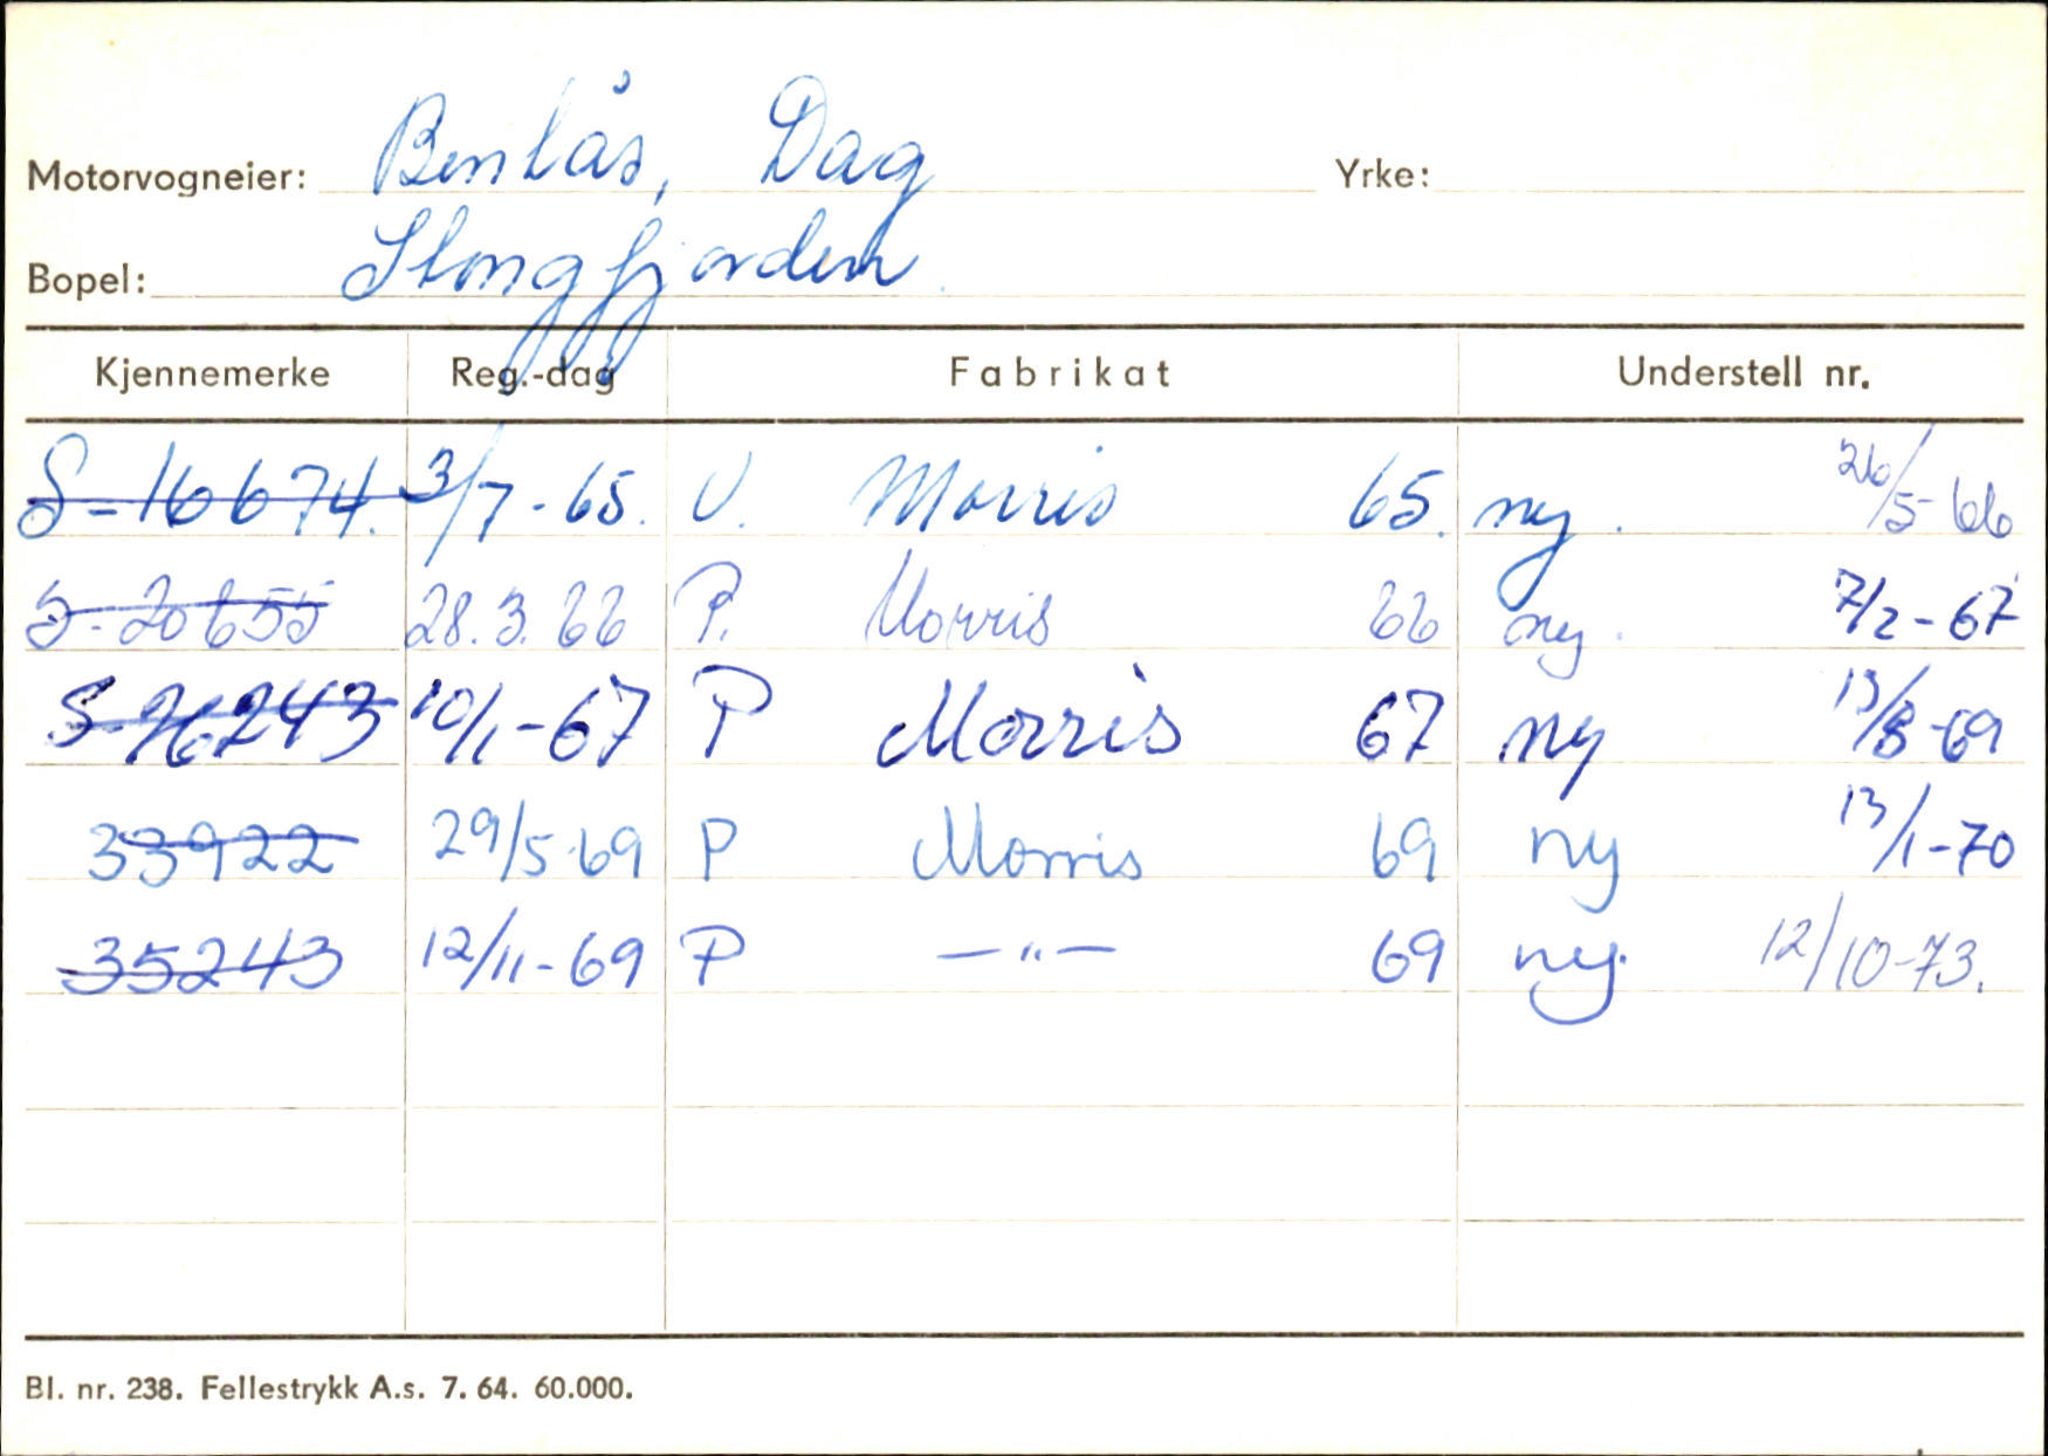 Motorvogneier: Benlås, Dag Yrke:
Bopel: Stongfjorden
Kjennemerke Reg.-dag Fabrikat Understell nr.
S-16674. 3/7-65. V. Morris 65. ny. 26/5-66
S-20655 28.3.66 P. Morris 66 ny. 7/2-67
S-26243 10/1-67 P Morris 67 ny 13/8-69
33922 29/5-69 P Morris 69 ny 13/1-70
35243 12/11-69 P —"— 69 ny. 12/10-73.
Bl. nr. 238. Fellestrykk A.s. 7. 64. 60.000.